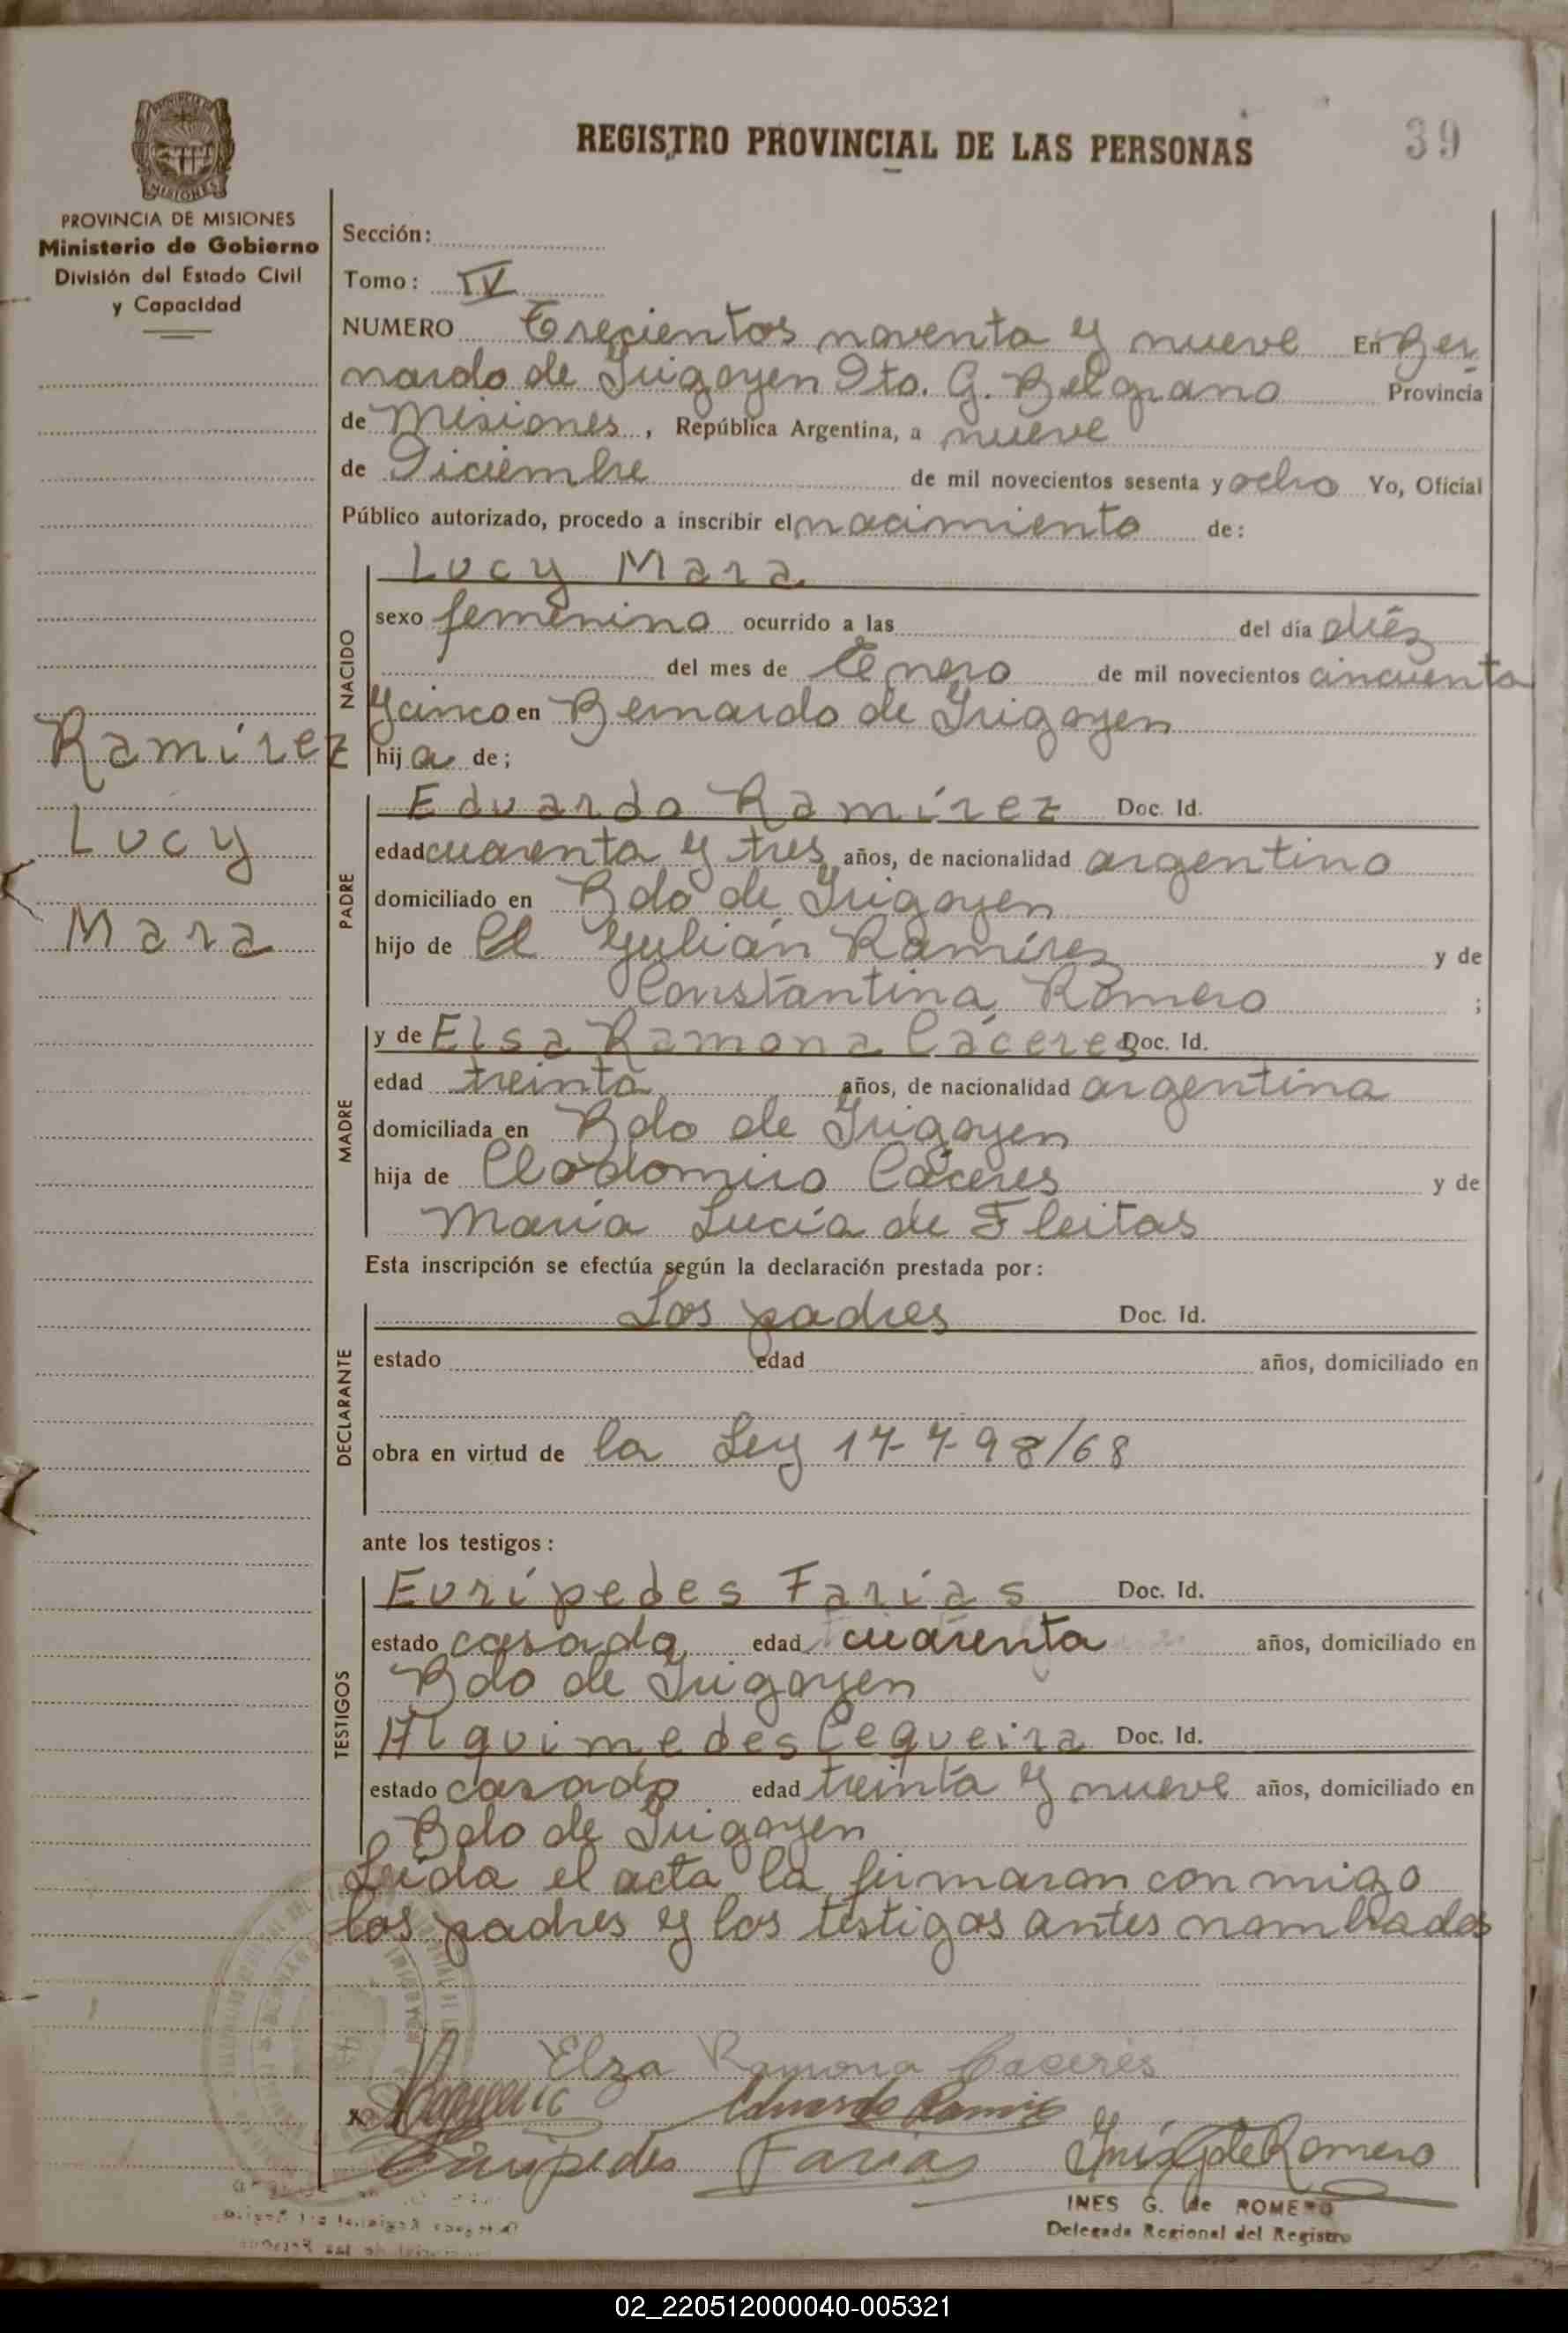 REGISTRO PROVINCIAL DE LAS PERSONAS
39
MISIONES
PROVINCIA DE MISIONES
Ministerio de Gobierno
División del Estado Civil
y Capacidad
Sección:
Tomo: IV
NUMERO Trecientos noventa y nueve En Ber
nardo de Irigoyen Dto. G. Belgrano Provincia
de Misiones, República Argentina, a nueve
de Diciembre de mil novecientos sesenta y ocho Yo, Oficial
Público autorizado, procedo a inscribir el nacimiento de:
NACIDO
Lucy Mara
sexo femenino ocurrido a las del día diéz
del mes de Enero de mil novecientos cincuenta
y cinco en Bernardo de Irigoyen
hija de;
Ramírez
Lucy
Mara
PADRE
Eduardo Ramírez Doc. Id.
edad cuarenta y tres años, de nacionalidad argentino
domiciliado en Bdo de Irigoyen
hijo de Yulián Ramírez y de
Constantina Romero ;
MADRE
y de Elsa Ramona Cáceres Doc. Id.
edad treinta años, de nacionalidad argentina
domiciliada en Bdo de Irigoyen
hija de Clodomiro Cáceres y de
María Lucía de Fleitas
Esta inscripción se efectúa según la declaración prestada por:
DECLARANTE
Los padres Doc. Id.
estado edad años, domiciliado en
obra en virtud de la Ley 17798/68
ante los testigos:
TESTIGOS
Eurípedes Farías Doc. Id.
estado casado edad cuarenta años, domiciliado en
Bdo de Irigoyen
Alquimedes Cequeira Doc. Id.
estado casado edad treinta y nueve años, domiciliado en
Bdo de Irigoyen
Leída el acta la firmaron con migo
los padres y los testigos antes nombrados
Elza Ramona Caceres
Eduardo Ramirez
Euripedes Farias Inés G de Romero
INES G. de ROMERO
Delegada Regional del Registro
02_220512000040-005321